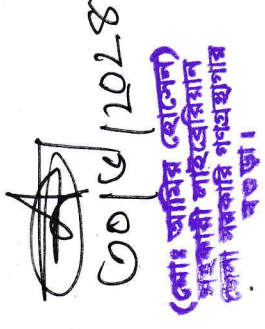 ৩০/৬/২০২৪
(মোঃ আমির হোসেন)
সহকারী লাইব্রেরিয়ান
জেলা সরকারি গণগ্রন্থাগার
বগুড়া।